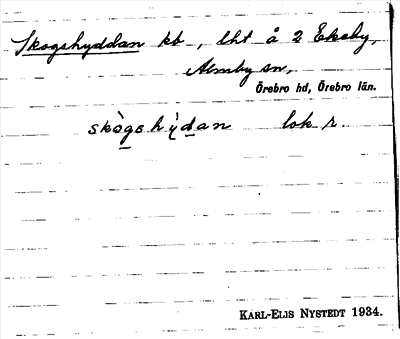 Skogshyddan kb, lht å 2 Ekeby,
Almby sn,
Örebro hd, Örebro län.
skògshỳdan lok r.
KARL-ELIS NYSTEDT 1934.